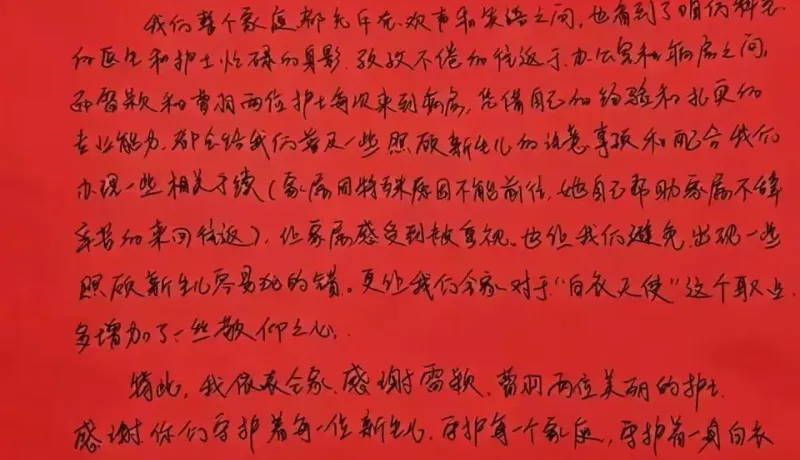 我们整个家庭都充斥在欢声和笑语之间,也看到了咱们科室
的医生和护士忙碌的身影,孜孜不倦的往返于办公室和病房之间,
雷颖和曹羽两位护士每次来到病房,凭借自己的经验和扎实的
专业能力,都会给我们普及一些照顾新生儿的注意事项和配合我们
办理一些相关手续(家属因特殊原因不能前往,她自己帮助家属不辞
辛苦的来回往返),让家属感受到被重视。也让我们避免出现一些
照顾新生儿容易犯的错。更让我们全家对于“白衣天使”这个职业
多增加了一些敬仰之心。
特此,我代表全家感谢雷颖、曹羽两位美丽的护士
感谢你们守护着每一位新生儿,守护每一个家庭,守护着一身白衣